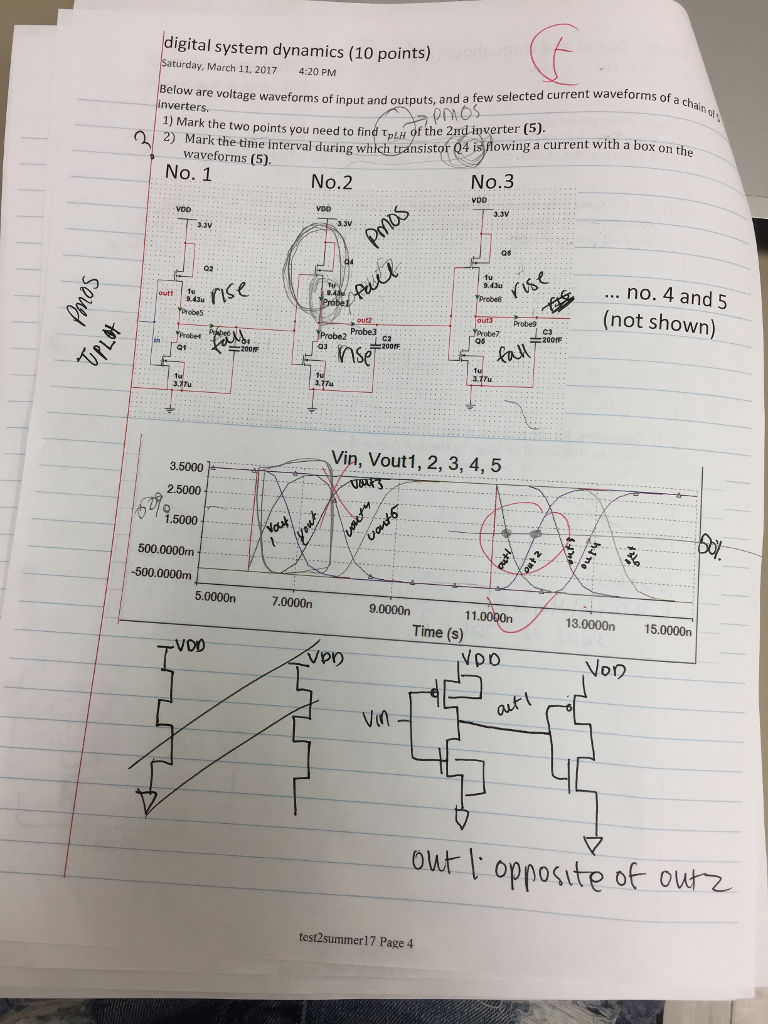 digital system dynamics (10 points)
Saturday, March 11, 2017 4:20 PM
Below are voltage waveforms of input and outputs, and a few selected current waveforms of a chain of 5
inverters.
PMOS
1) Mark the two points you need to find τpLH of the 2nd inverter (5).
2) Mark the time interval during which transistor Q4 is flowing a current with a box on the
waveforms (5).
No. 1 No.2 No.3
VDD VDD VDD
3.3V 3.3V 3.3V
PMOS
Q2 Q4 Q6
1u 1u 1u
9.43u 9.43u 9.43u
rise fall rise
out1 Probe5 Probe1 Probe8
out2 out3
Probe3 Probe9
in Probe4 Probe6 Probe2 Probe7
fall rise fall
Q1 Q3 Q5
C2 C3
200fF 200fF 200fF
1u 1u 1u
3.77u 3.77u 3.77u
... no. 4 and 5
(not shown)
PMOS
Vin, Vout1, 2, 3, 4, 5
3.5000
2.5000
1.5000
500.0000m
-500.0000m
50%
Vout 1
Vout
Vout3
Vout4
Vout5
out1
out2
out3
out4
50%
5.0000n 7.0000n 9.0000n 11.0000n 13.0000n 15.0000n
Time (s)
VDD VDD VDD VDD
Vin out1
out 1: opposite of out2
test2summer17 Page 4